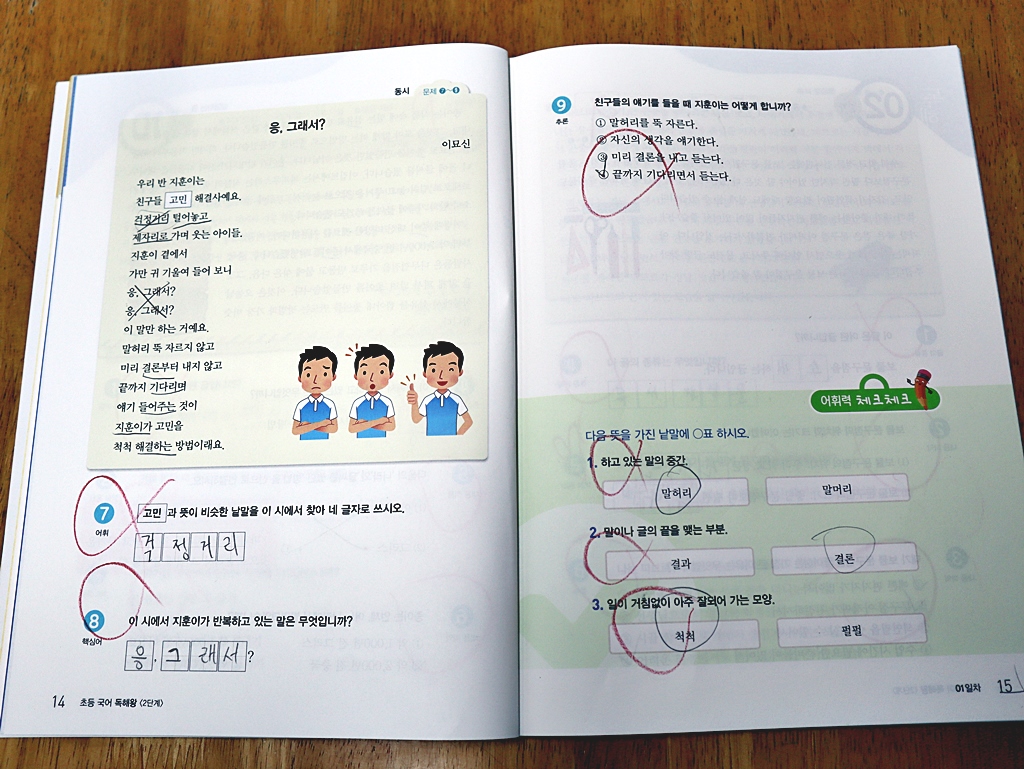 동시 문제 7~9
응, 그래서?
이묘신
우리 반 지훈이는
친구들 고민 해결사예요.
걱정거리 털어놓고
제자리로 가며 웃는 아이들.
지훈이 곁에서
가만 귀 기울여 들어 보니
응, 그래서?
응, 그래서?
이 말만 하는 거예요.
말허리 뚝 자르지 않고
미리 결론부터 내지 않고
끝까지 기다리며
얘기 들어주는 것이
지훈이가 고민을
척척 해결하는 방법이래요.
7 고민 과 뜻이 비슷한 낱말을 이 시에서 찾아 네 글자로 쓰시오.
어휘
걱정거리
8 이 시에서 지훈이가 반복하고 있는 말은 무엇입니까?
핵심어
응, 그래서?
14 초등 국어 독해왕 〈2단계〉
9 친구들의 얘기를 들을 때 지훈이는 어떻게 합니까?
추론
① 말허리를 뚝 자른다.
② 자신의 생각을 얘기한다.
③ 미리 결론을 내고 듣는다.
④ 끝까지 기다리면서 듣는다.
어휘력 체크체크
다음 뜻을 가진 낱말에 ○표 하시오.
1. 하고 있는 말의 중간.
말허리 말머리
2. 말이나 글의 끝을 맺는 부분.
결과 결론
3. 일이 거침없이 아주 잘되어 가는 모양.
척척 펄펄
01일차 15